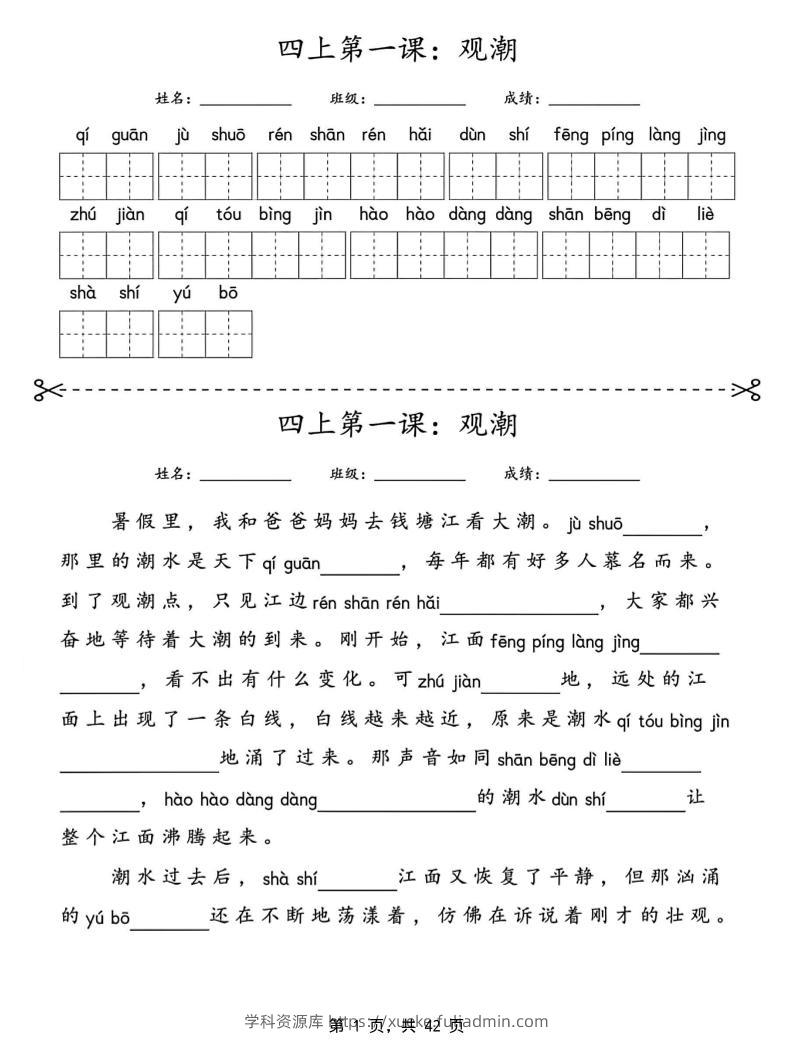 四上第一课：观潮
姓名：__________ 班级：__________ 成绩：__________
qí guān jù shuō rén shān rén hǎi dùn shí fēng píng làng jìng
zhú jiàn qí tóu bìng jìn hào hào dàng dàng shān bēng dì liè
shà shí yú bō
四上第一课：观潮
姓名：__________ 班级：__________ 成绩：__________
暑假里，我和爸爸妈妈去钱塘江看大潮。jù shuō________，
那里的潮水是天下qí guān________，每年都有好多人慕名而来。
到了观潮点，只见江边rén shān rén hǎi________________，大家都兴
奋地等待着大潮的到来。刚开始，江面fēng píng làng jìng________
________，看不出有什么变化。可zhú jiàn________地，远处的江
面上出现了一条白线，白线越来越近，原来是潮水qí tóu bìng jìn
________________地涌了过来。那声音如同shān bēng dì liè________
________，hào hào dàng dàng________________的潮水dùn shí________让
整个江面沸腾起来。
潮水过去后，shà shí________江面又恢复了平静，但那汹涌
的yú bō________还在不断地荡漾着，仿佛在诉说着刚才的壮观。
学科资源库 https://xueke.fulladmin.com
第 1 页，共 42 页